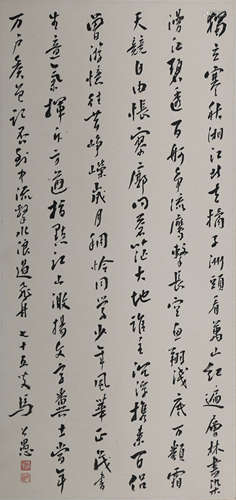 獨立寒秋湘江北去橘子洲頭看萬山紅遍層林盡染
漫江碧透百舸爭流鷹擊長空魚翔淺底万類霜
天競自由悵寥廓問蒼茫大地誰主沉浮携來百侣
曾游憶往昔崢嶸歲月稠恰同學少年風華正茂書
生意氣揮斥方遒指點江山激揚文字糞土當年
万户侯曾記否到中流擊水浪遏飛舟 七十五叟馬公愚